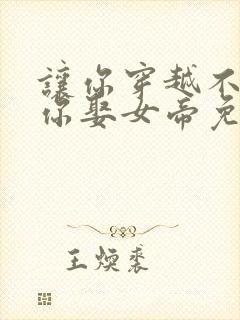 讓你穿越不
你娶女帝免
王煥裘